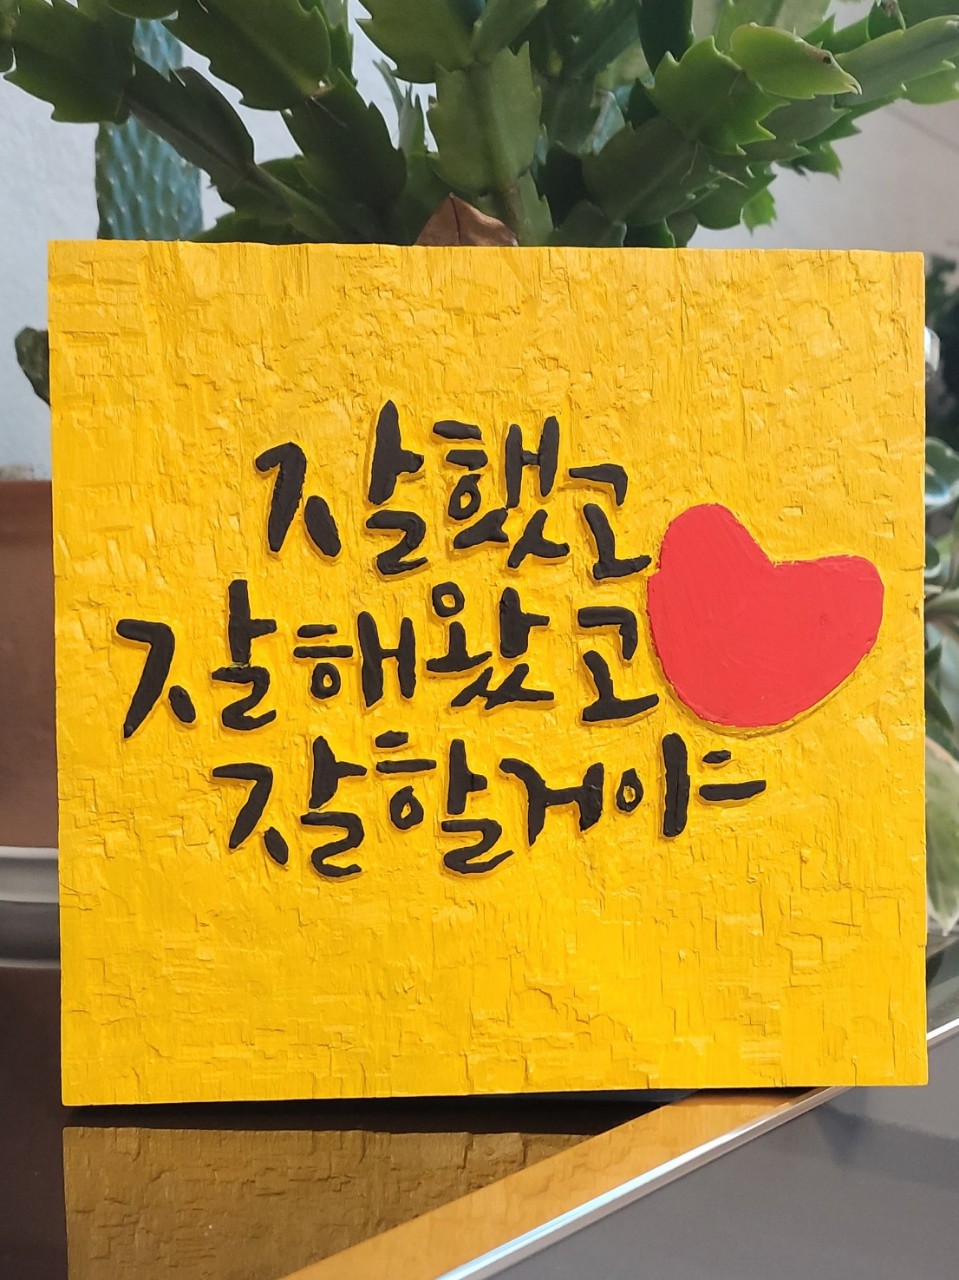 잘했고
잘해왔고
잘할거야